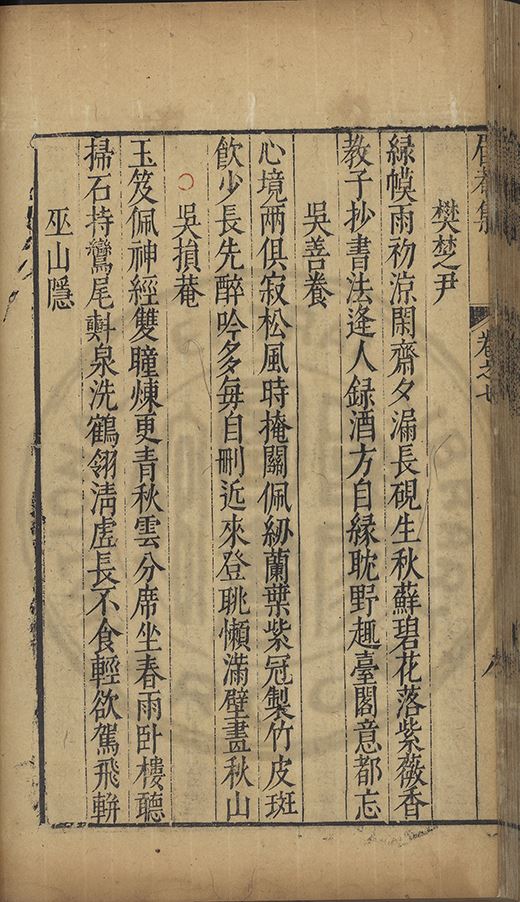 居
集
卷之七
樊楚尹
綠幙雨初涼閑齋夕漏長硯生秋蘚碧花落紫薇香
教子抄書法逢人録酒方自緣耽野趣臺閣意都忘
吳善養
心境兩俱寂松風時掩關佩紉蘭葉紫冠製竹皮斑
飲少長先醉吟多每自刪近來登眺懶滿壁畫秋山
吳損菴
玉笈佩神經雙瞳煉更青秋雲分席坐春雨卧樓聽
掃石持鸞尾㪺泉洗鶴翎清虛長不食輕欲駕飛軿
巫山隱